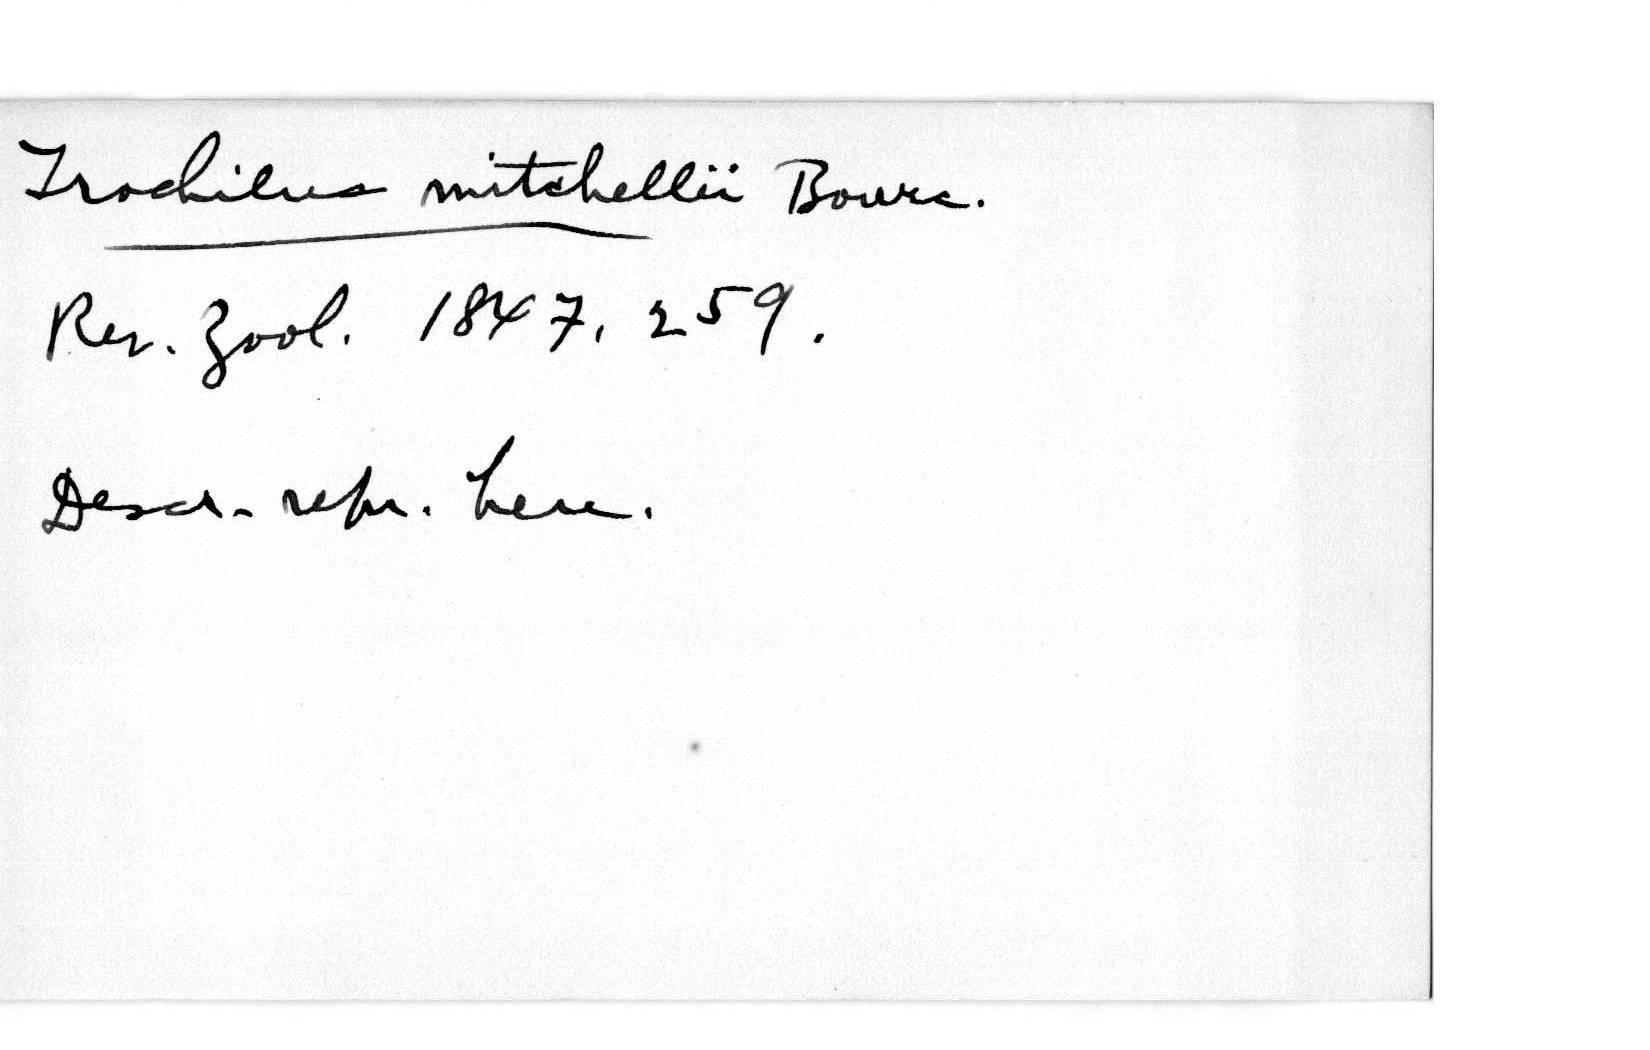 Trochilus mitchellii Bourc.
Rev. Zool. 1847, 259.
Descr. repr. here.